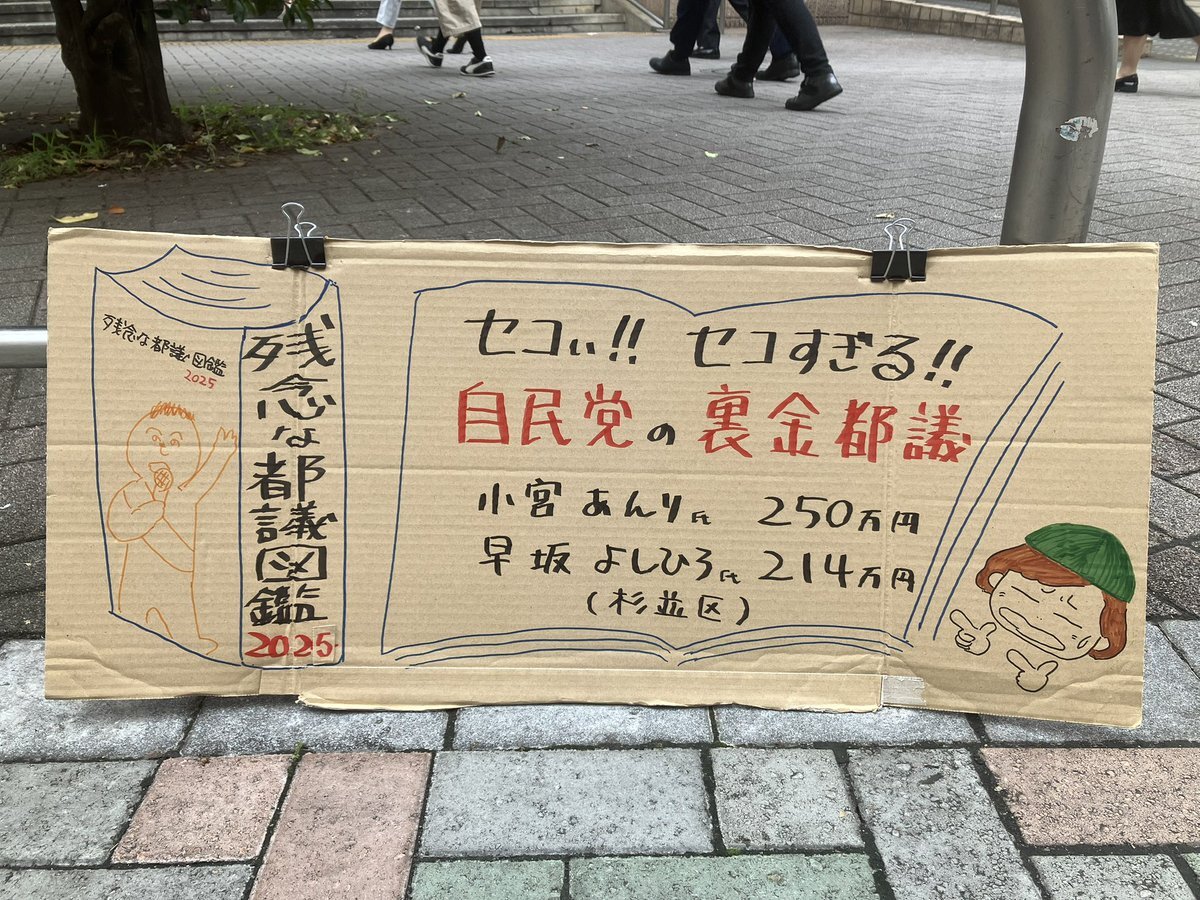 残念な都議図鑑
2025
残念な都議図鑑
2025
セコぃ!! セコすぎる!!
自民党の裏金都議
小宮あんり氏 250万円
早坂よしひろ氏 214万円
(杉並区)